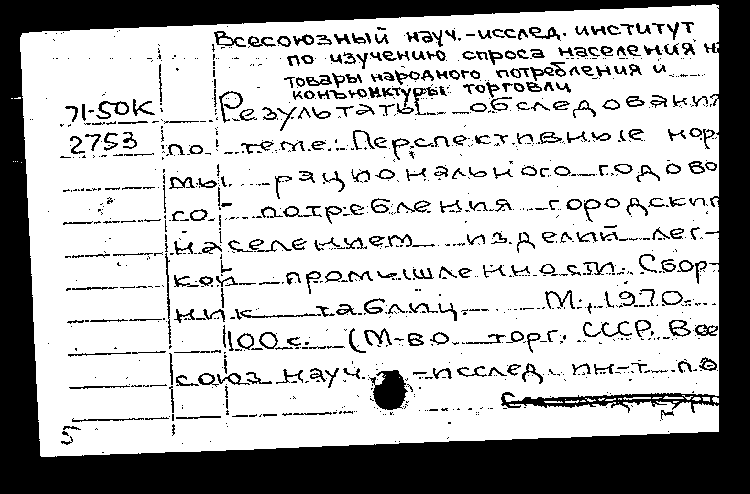 Всесоюзный науч.-исслед. институт
по изучению спроса населения н
товары народного потребления и
конъюнктуры торговли
71-50К Результаты обследования
2753 по теме: Перспективные нор-
мы рационального годово
го потребления городским
населением изделий лег-
кой промышленности. Сбор-
ник таблиц. М., 1970.
100 с. (М-во торг. СССР. Все
союз науч.-исслед. ин-т по
5